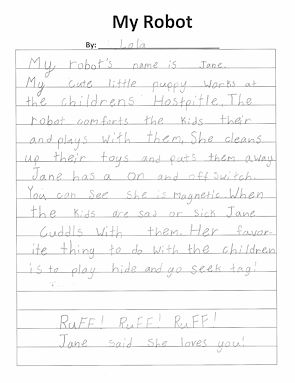 My Robot
By: Lola
My robot's name is Jane.
My cute little puppy works at
the childrens Hostpitle. The
robot comforts the kids their
and plays with them. She cleans
up their toys and puts them away
Jane has a on and off switch.
You can see she is magnetic. When
the kids are sad or sick Jane
Cuddls with them. Her favor-
ite thing to do with the children
is to play hide and go seek tag!
RuFF! RuFF! RuFF!
Jane said She loves you!